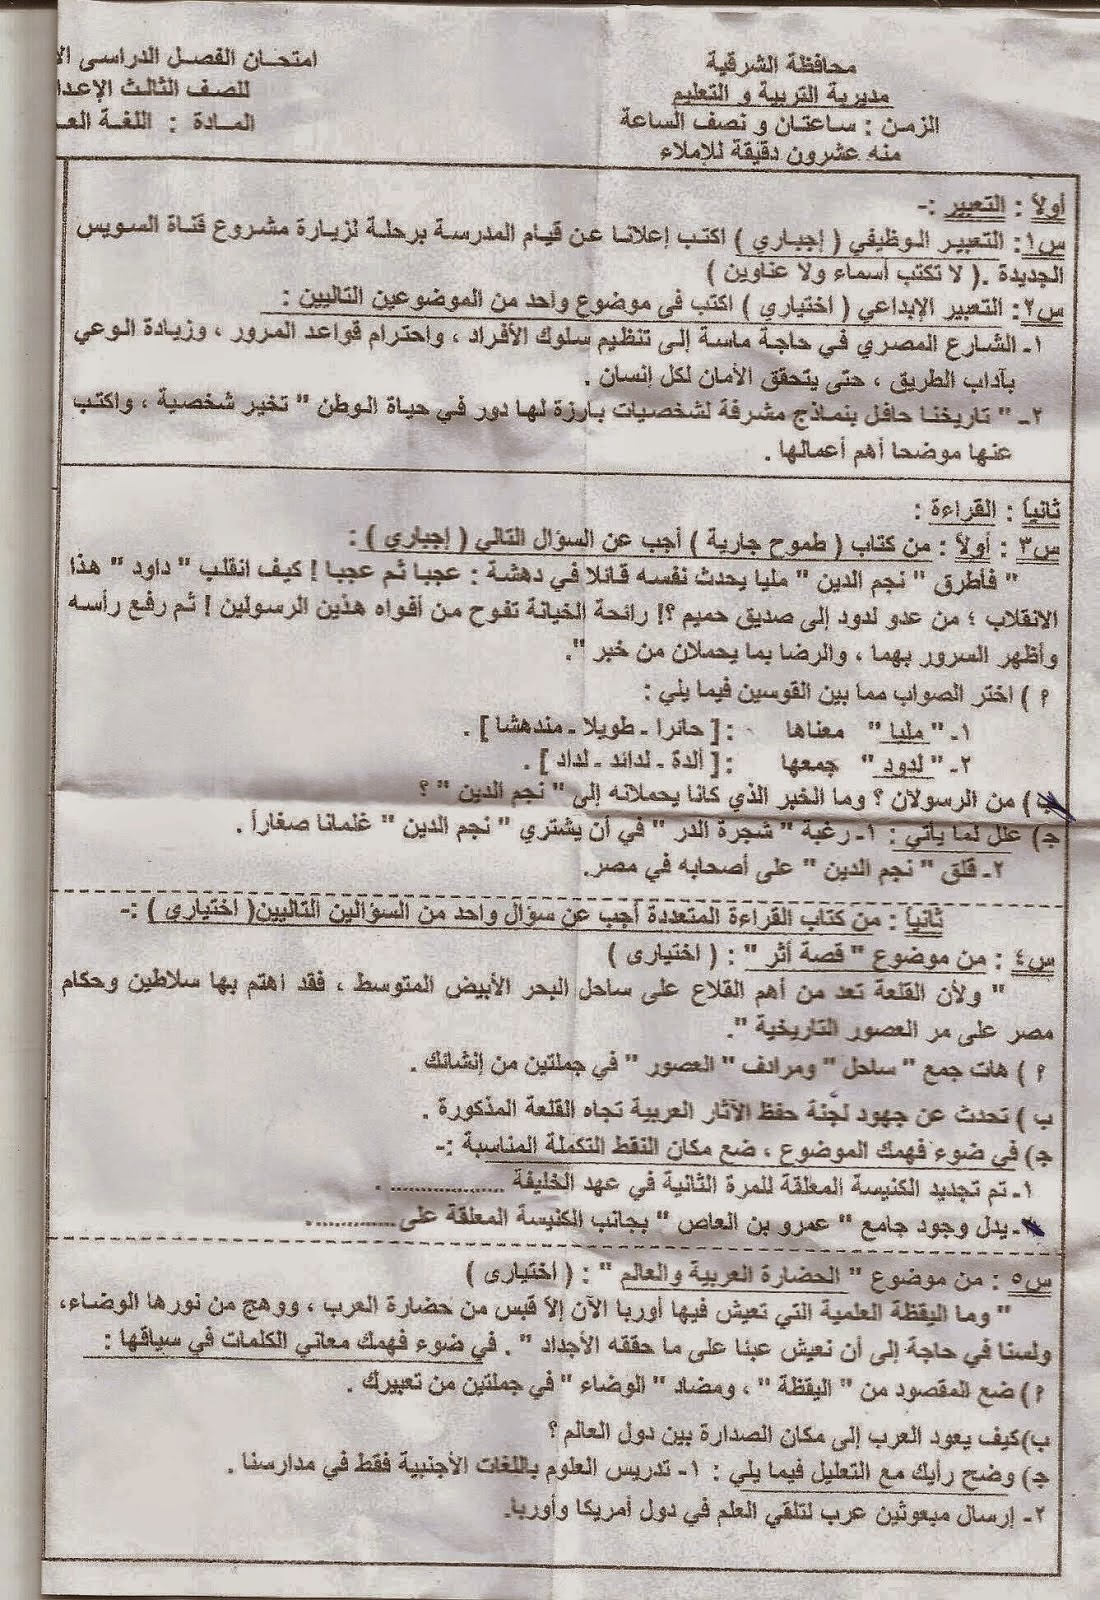 محافظة الشرقية
مديرية التربية و التعليم
الزمن : ساعتان و نصف الساعة
منه عشرون دقيقة للإملاء
امتحان الفصل الدراسى
للصف الثالث
المادة : اللغة
أولاً : التعبير :-
س١: التعبير الوظيفي ( إجباري ) اكتب إعلانا عن قيام المدرسة برحلة لزيارة مشروع قناة السويس
الجديدة .( لا تكتب أسماء ولا عناوين )
س٢: التعبير الإبداعي ( اختياري ) اكتب فى موضوع واحد من الموضوعين التاليين :
١- الشارع المصري في حاجة ماسة إلى تنظيم سلوك الأفراد ، واحترام قواعد المرور ، وزيادة الوعي
بآداب الطريق ، حتى يتحقق الأمان لكل إنسان .
٢- " تاريخنا حافل بنماذج مشرفة لشخصيات بارزة لها دور في حياة الوطن " تخير شخصية ، واكتب
عنها موضحا أهم أعمالها .
ثانياً : القراءة :
س٣ : أولاً : من كتاب ( طموح جارية ) أجب عن السؤال التالي ( إجباري ) :
" فأطرق " نجم الدين " مليا يحدث نفسه قائلا في دهشة : عجبا ثم عجبا ! كيف انقلب " داود " هذا
الانقلاب ؛ من عدو لدود إلى صديق حميم ؟! رائحة الخيانة تفوح من أفواه هذين الرسولين ! ثم رفع رأسه
وأظهر السرور بهما ، والرضا بما يحملان من خبر ".
أ ) اختر الصواب مما بين القوسين فيما يلي :
١- " مليا " معناها : [ حائرا - طويلا - مندهشا ] .
٢- " لدود " جمعها : [ ألدة - لدائد - لداد ] .
ب) من الرسولان ؟ وما الخبر الذي كانا يحملانه إلى " نجم الدين " ؟
ج) علل لما يأتي : ١- رغبة " شجرة الدر " في أن يشتري " نجم الدين " غلمانا صغاراً .
٢- قلق " نجم الدين " على أصحابه في مصر.
ثانياً : من كتاب القراءة المتعددة أجب عن سؤال واحد من السؤالين التاليين( اختيارى ) :-
س٤ : من موضوع " قصة أثر " : ( اختيارى )
" ولأن القلعة تعد من أهم القلاع على ساحل البحر الأبيض المتوسط ، فقد اهتم بها سلاطين وحكام
مصر على مر العصور التاريخية ".
أ ) هات جمع " ساحل " ومرادف " العصور " في جملتين من إنشائك .
ب ) تحدث عن جهود لجنة حفظ الآثار العربية تجاه القلعة المذكورة .
ج) في ضوء فهمك الموضوع ، ضع مكان النقط التكملة المناسبة :-
١- تم تجديد الكنيسة المعلقة للمرة الثانية في عهد الخليفة ................. .
٢- يدل وجود جامع " عمرو بن العاص " بجانب الكنيسة المعلقة على............. .
س٥ : من موضوع " الحضارة العربية والعالم " : ( اختيارى )
" وما اليقظة العلمية التي تعيش فيها أوربا الآن إلا قبس من حضارة العرب ، ووهج من نورها الوضاء،
ولسنا في حاجة إلى أن نعيش عبئا على ما حققه الأجداد " . في ضوء فهمك معاني الكلمات في سياقها :
أ) ضع المقصود من " اليقظة " ، ومضاد " الوضاء " في جملتين من تعبيرك .
ب)كيف يعود العرب إلى مكان الصدارة بين دول العالم ؟
ج) وضح رأيك مع التعليل فيما يلي : ١- تدريس العلوم باللغات الأجنبية فقط في مدارسنا .
٢- إرسال مبعوثين عرب لتلقي العلم في دول أمريكا وأوربا.